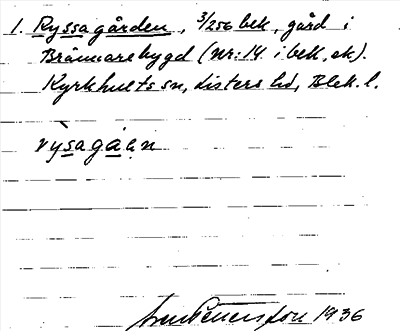 1. Ryssagården, 3/256 bek, gård i
Brännarebygd (nr: 14 i bek. ek).
Kyrkhults sn, Listers hd, Blek. l.
rỳsagậən
1936